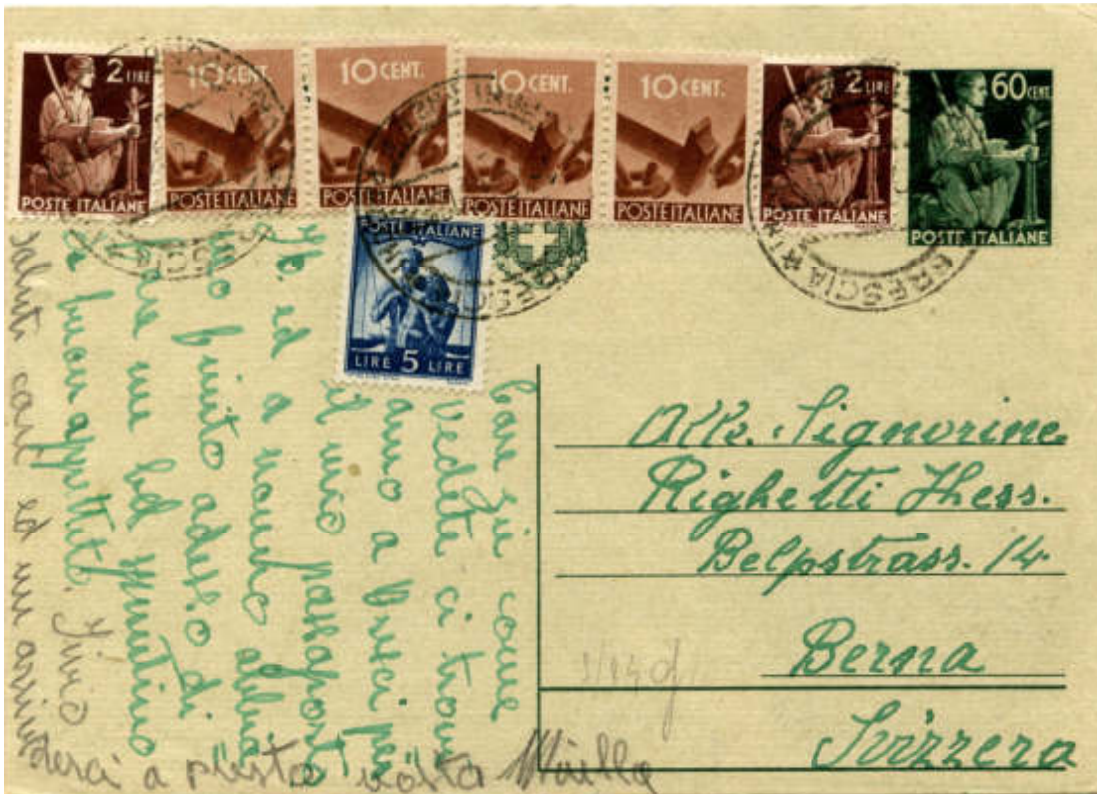 2 LIRE
10 CENT.
POSTE ITALIANE
10 CENT.
POSTE ITALIANE
10 CENT.
POSTE ITALIANE
10 CENT.
POSTE ITALIANE
2 LIRE
60 CENT.
POSTE ITALIANE
POSTE ITALIANE
LIRE 5 LIRE
BRESCIA
Signorine
Righetti Hess.
Belpstrass. 14
Berna
Svizzera
Care Zie come
vedete ci trovi
amo a Bresci per
il mio passaporto
ed a
mo finito adesso di
fare un bel
e buon appetito.
saluti cari ed un arrive
derci a presto vostra